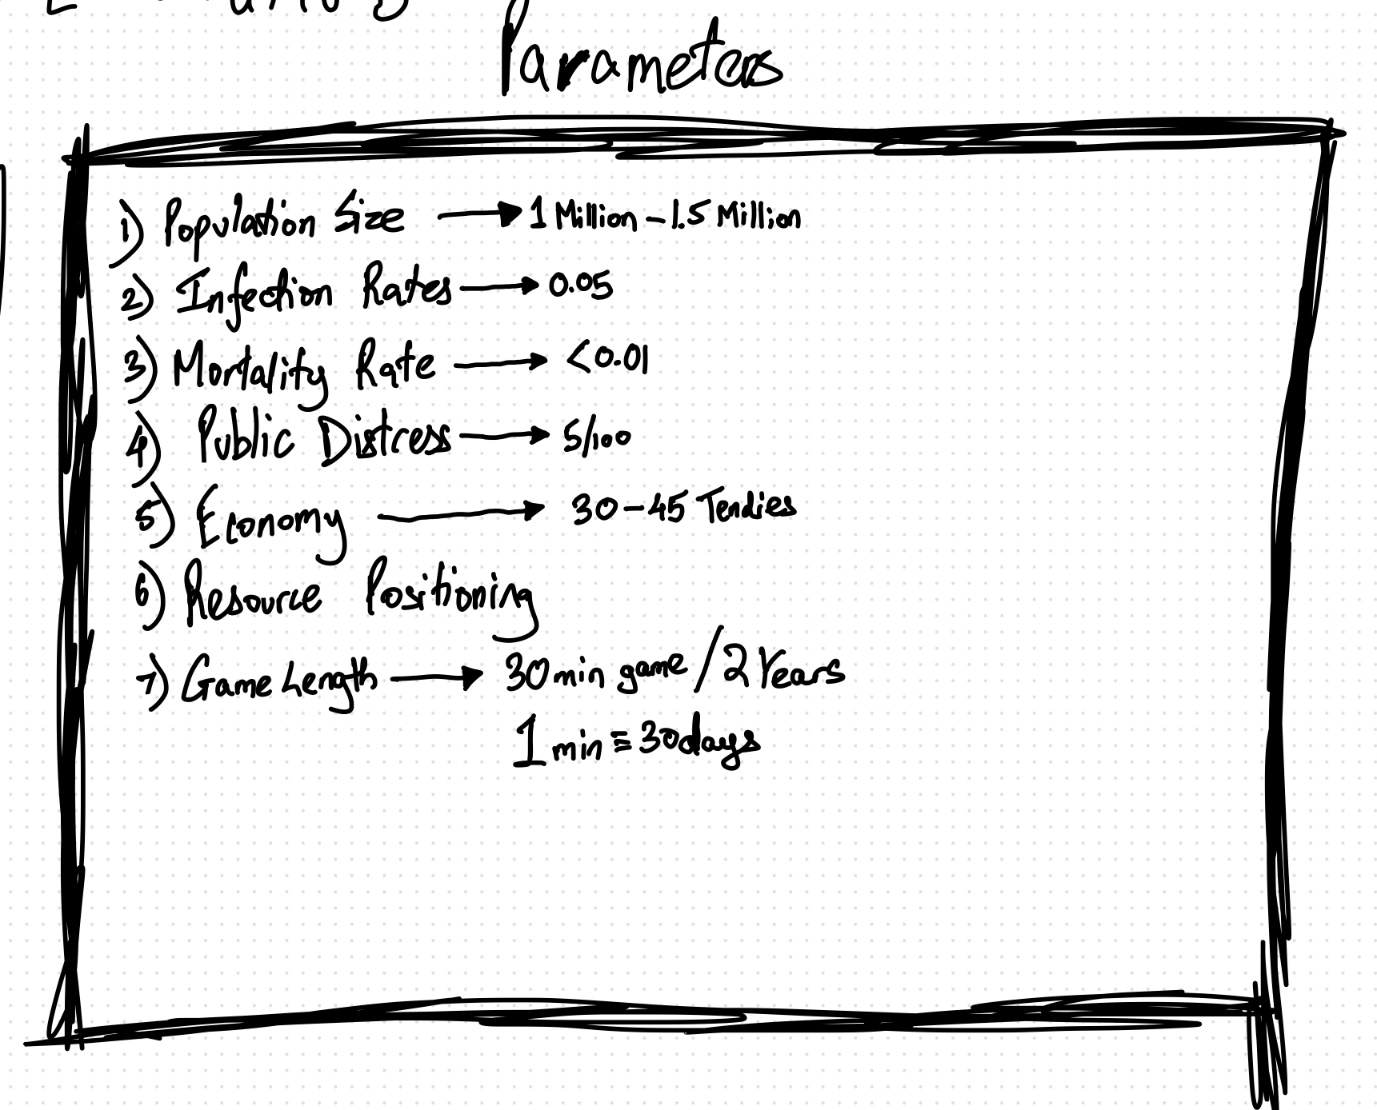 Parameters
1) Population Size → 1 Million - 1.5 Million
2) Infection Rates → 0.05
3) Mortality Rate → <0.01
4) Public Distress → 5/100
5) Economy → 30-45 Tendies
6) Resource Positioning
7) Game Length → 30 min game / 2 Years
1 min ≡ 30 days